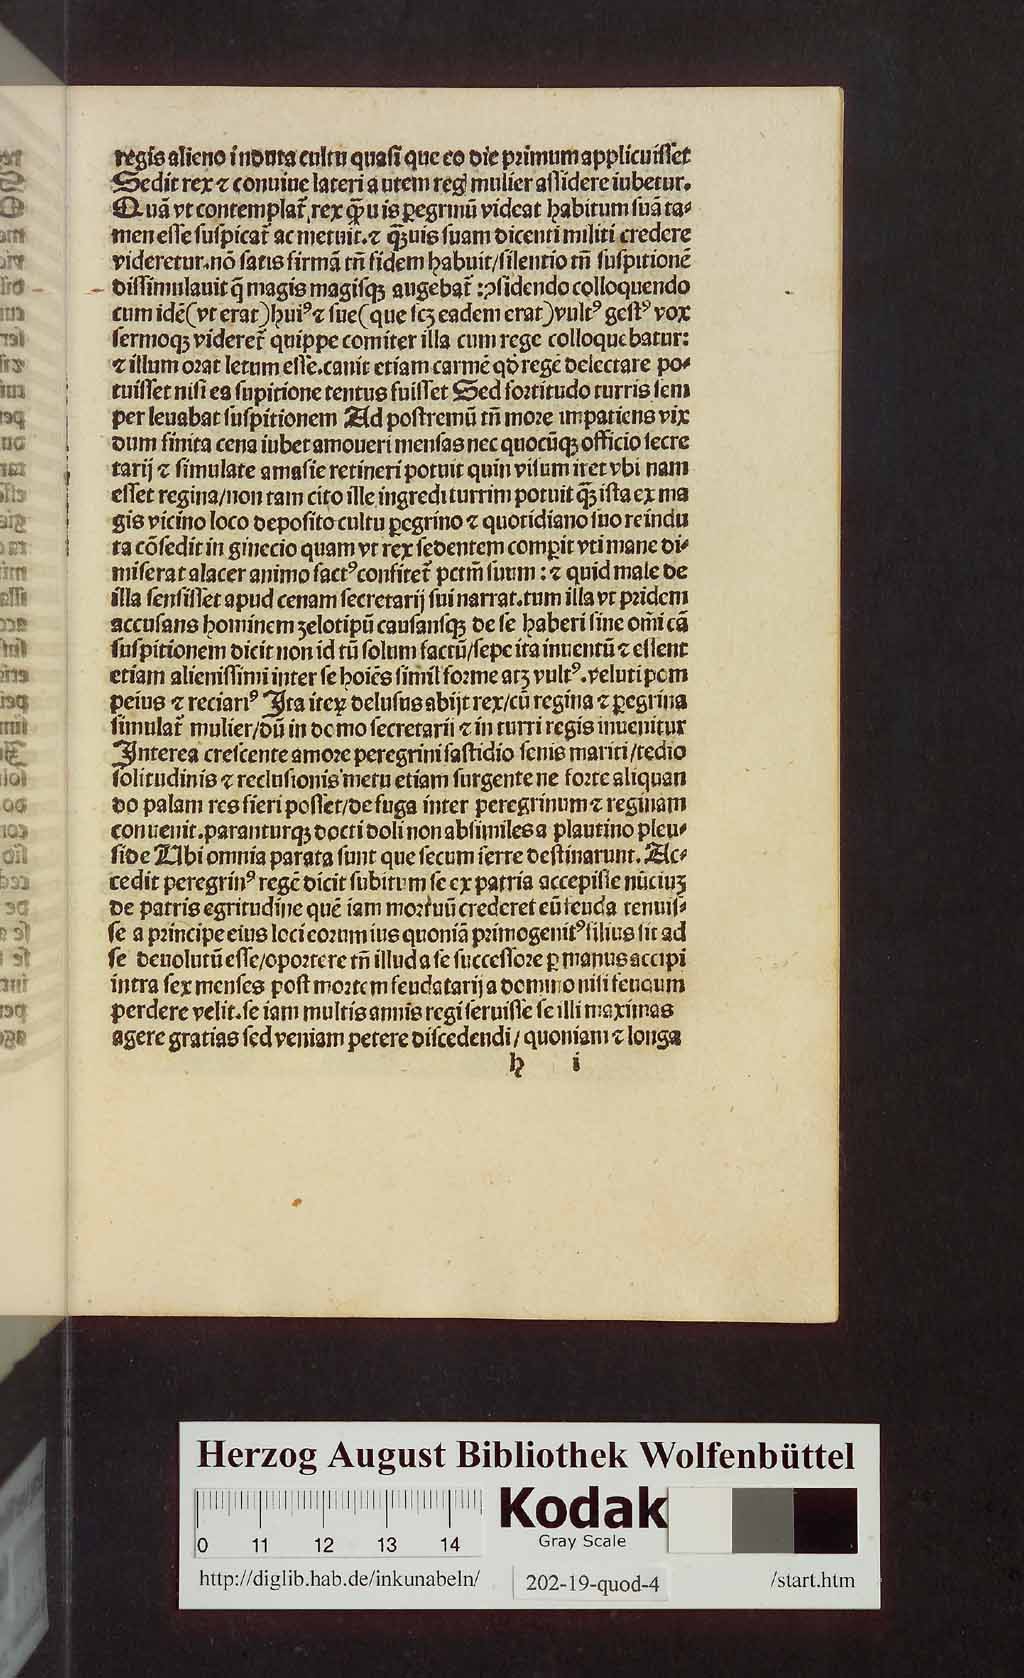 regis alieno induta cultu quasi que eo die primum applicuisset
Sedit rex ⁊ conuiue lateri autem regꝭ mulier assidere iubetur.
Quā vt contemplat᷑ rex qꝫuis ꝑegrinū videat habitum suā ta⸗
men esse suspicat᷑ ac metuit.⁊ qꝫuis suam dicenti militi credere
videretur.nō satis firmā tn̄ fidem habuit/silentio tn̄ suspitionē
dissimulauit q̄ magis magisqꝫ augebat᷑ :ꝯsidendo colloquendo
cum idē(vt erat)huiꝰ ⁊ sue(que scꝫ eadem erat)vultꝰ gestꝰ vox
sermoqꝫ videret᷑ quippe comiter illa cum rege colloquebatur:
⁊ illum orat letum esse.canit etiam carmē qd̄ regē delectare po⸗
tuisset nisi ea supitione tentus fuisset Sed fortitudo turris sem
per leuabat suspitionem Ad postremū tn̄ more impatiens vix
dum finita cena iubet amoueri mensas nec quocūqꝫ officio secre
tarij ⁊ simulate amasie retineri potuit quin visum iret vbi nam
esset regina/non tam cito ille ingredi turrim potuit qꝫ ista ex ma
gis vicino loco deposito cultu ꝑegrino ⁊ quotidiano suo reindu
ta cōsedit in ginecio quam vt rex sedentem comꝑit vti mane di⸗
miserat alacer animo factꝰ confitet᷑ pctm̄ suum : ⁊ quid male de
illa sensisset apud cenam secretarij sui narrat.tum illa vt pridem
accusans hominem zelotipū causansqꝫ de se haberi sine om̄i cā
suspitionem dicit non id tū solum factū/sepe ita inuentū ⁊ essent
etiam alienissimi inter se hoiēs simil forme atꝫ vultꝰ.veluti pom
peius ⁊ reciariꝰ Ita iteꝝ delusus abijt rex/cū regina ⁊ ꝑegrina
simulat᷑ mulier/dū in domo secretarii ⁊ in turri regis inuenitur
Interea crescente amore peregrini fastidio senis mariti/tedio
solitudinis ⁊ reclusionis metu etiam surgente ne forte aliquan
do palam res fieri posset/de fuga inter peregrinum ⁊ reginam
conuenit.paranturqꝫ docti doli non absimiles a plautino pleu⸗
side Ubi omnia parata sunt que secum ferre destinarunt. Ac⸗
cedit peregrinꝰ regē dicit subitum se ex patria accepisse nūciuꝫ
de patris egritudine quē iam mortuū crederet eū feuda tenuis⸗
se a principe eius loci eorum ius quoniā primogenitꝰ filius sit ad
se deuolutū esse/oportere tn̄ illud a se successore ꝑ manus accipi
intra sex menses post mortem feudatarij a domino nisi feudum
perdere velit.se iam multis annis regi seruisse se illi maximas
agere gratias sed veniam petere discedendi/ quoniam ⁊ longa
h i
Herzog August Bibliothek Wolfenbüttel
Kodak
Gray Scale
0 11 12 13 14
http://diglib.hab.de/inkunabeln/ 202-19-quod-4 /start.htm